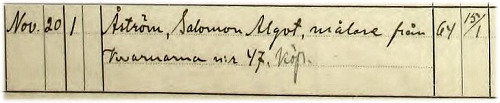 Nov. 20 1 Åström, Salomon Algot, målare från 64 15/1
Kvarnarna n:r 47. Köp.